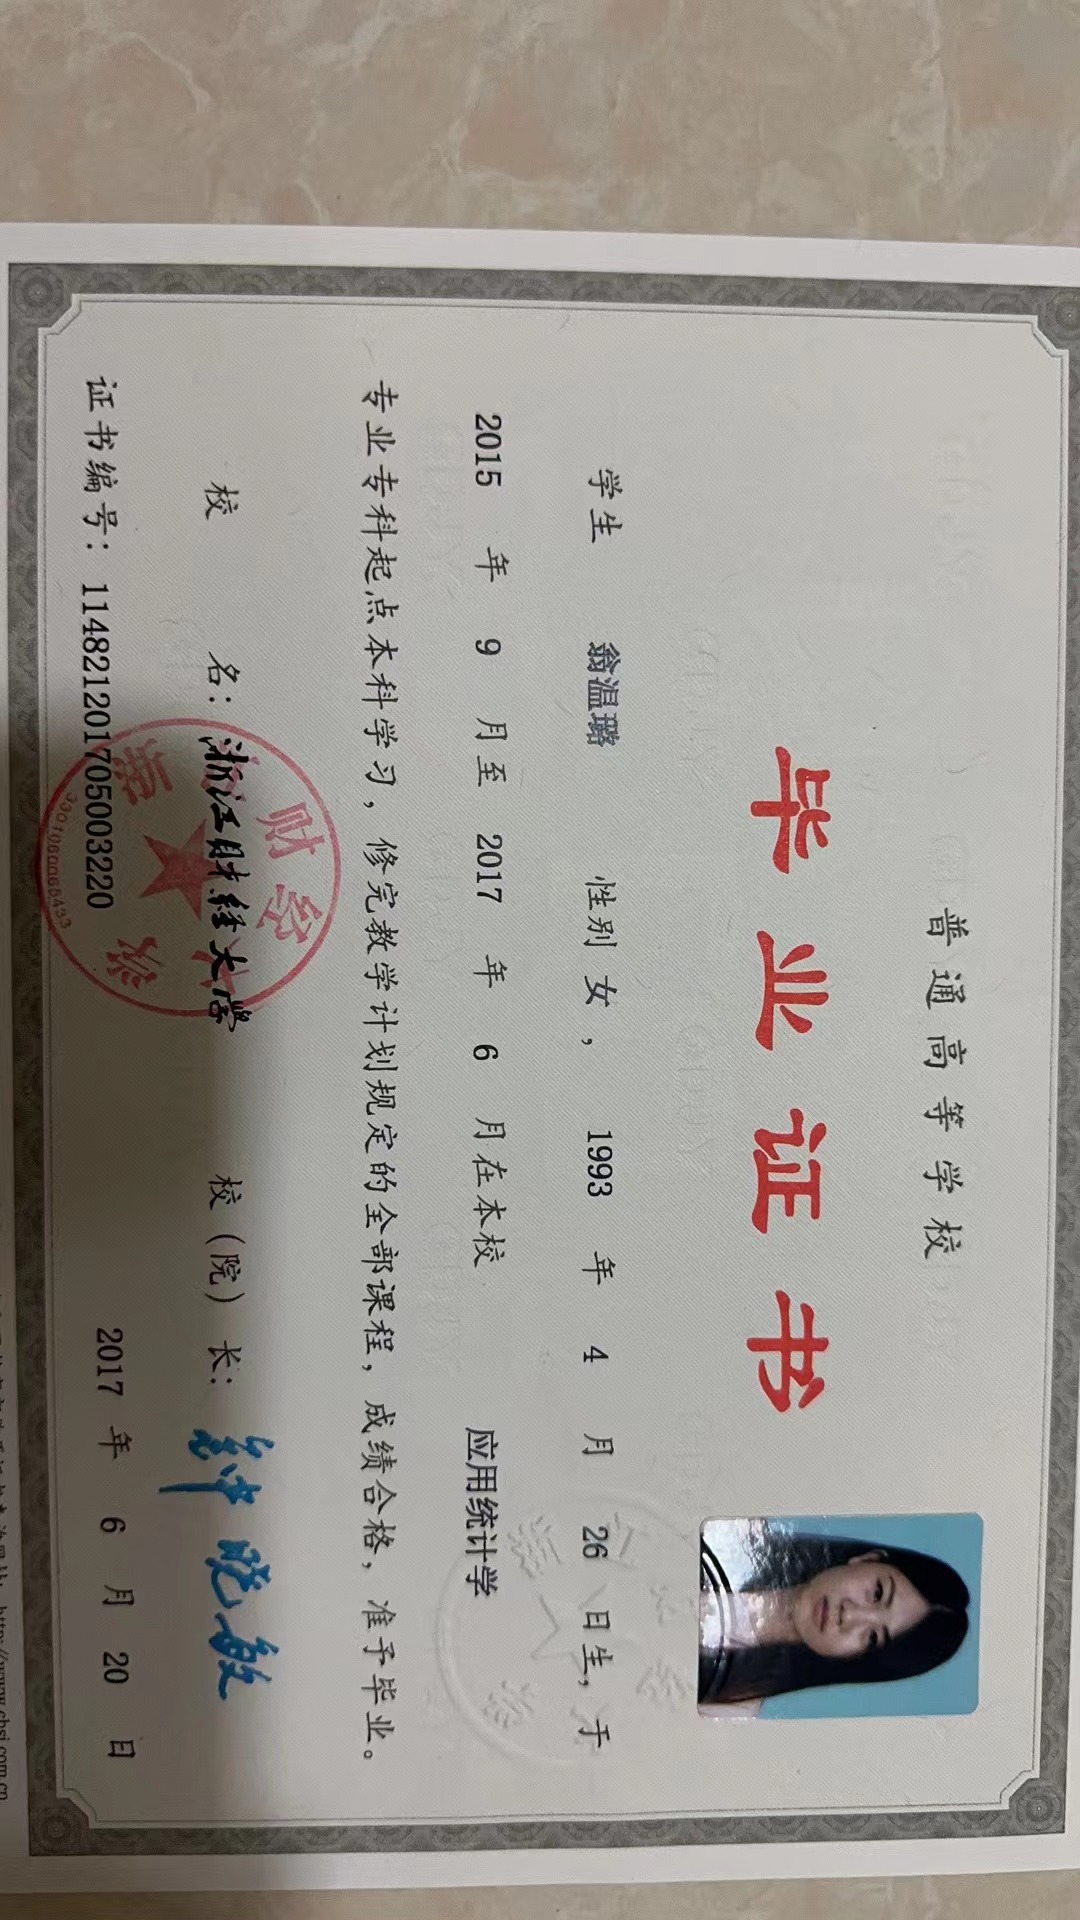 普通高等学校
毕业证书
学生 翁温璐 性别 女, 1993 年 4 月 26 日生,于
2015 年 9 月至 2017 年 6 月在本校 应用统计学
专业专科起点本科学习,修完教学计划规定的全部课程,成绩合格,准予毕业。
校 名: 浙江财经大学 校(院)长: 钟晓敏
证书编号: 114821201705003220 2017 年 6 月 20 日
http://www.chsi.com.cn